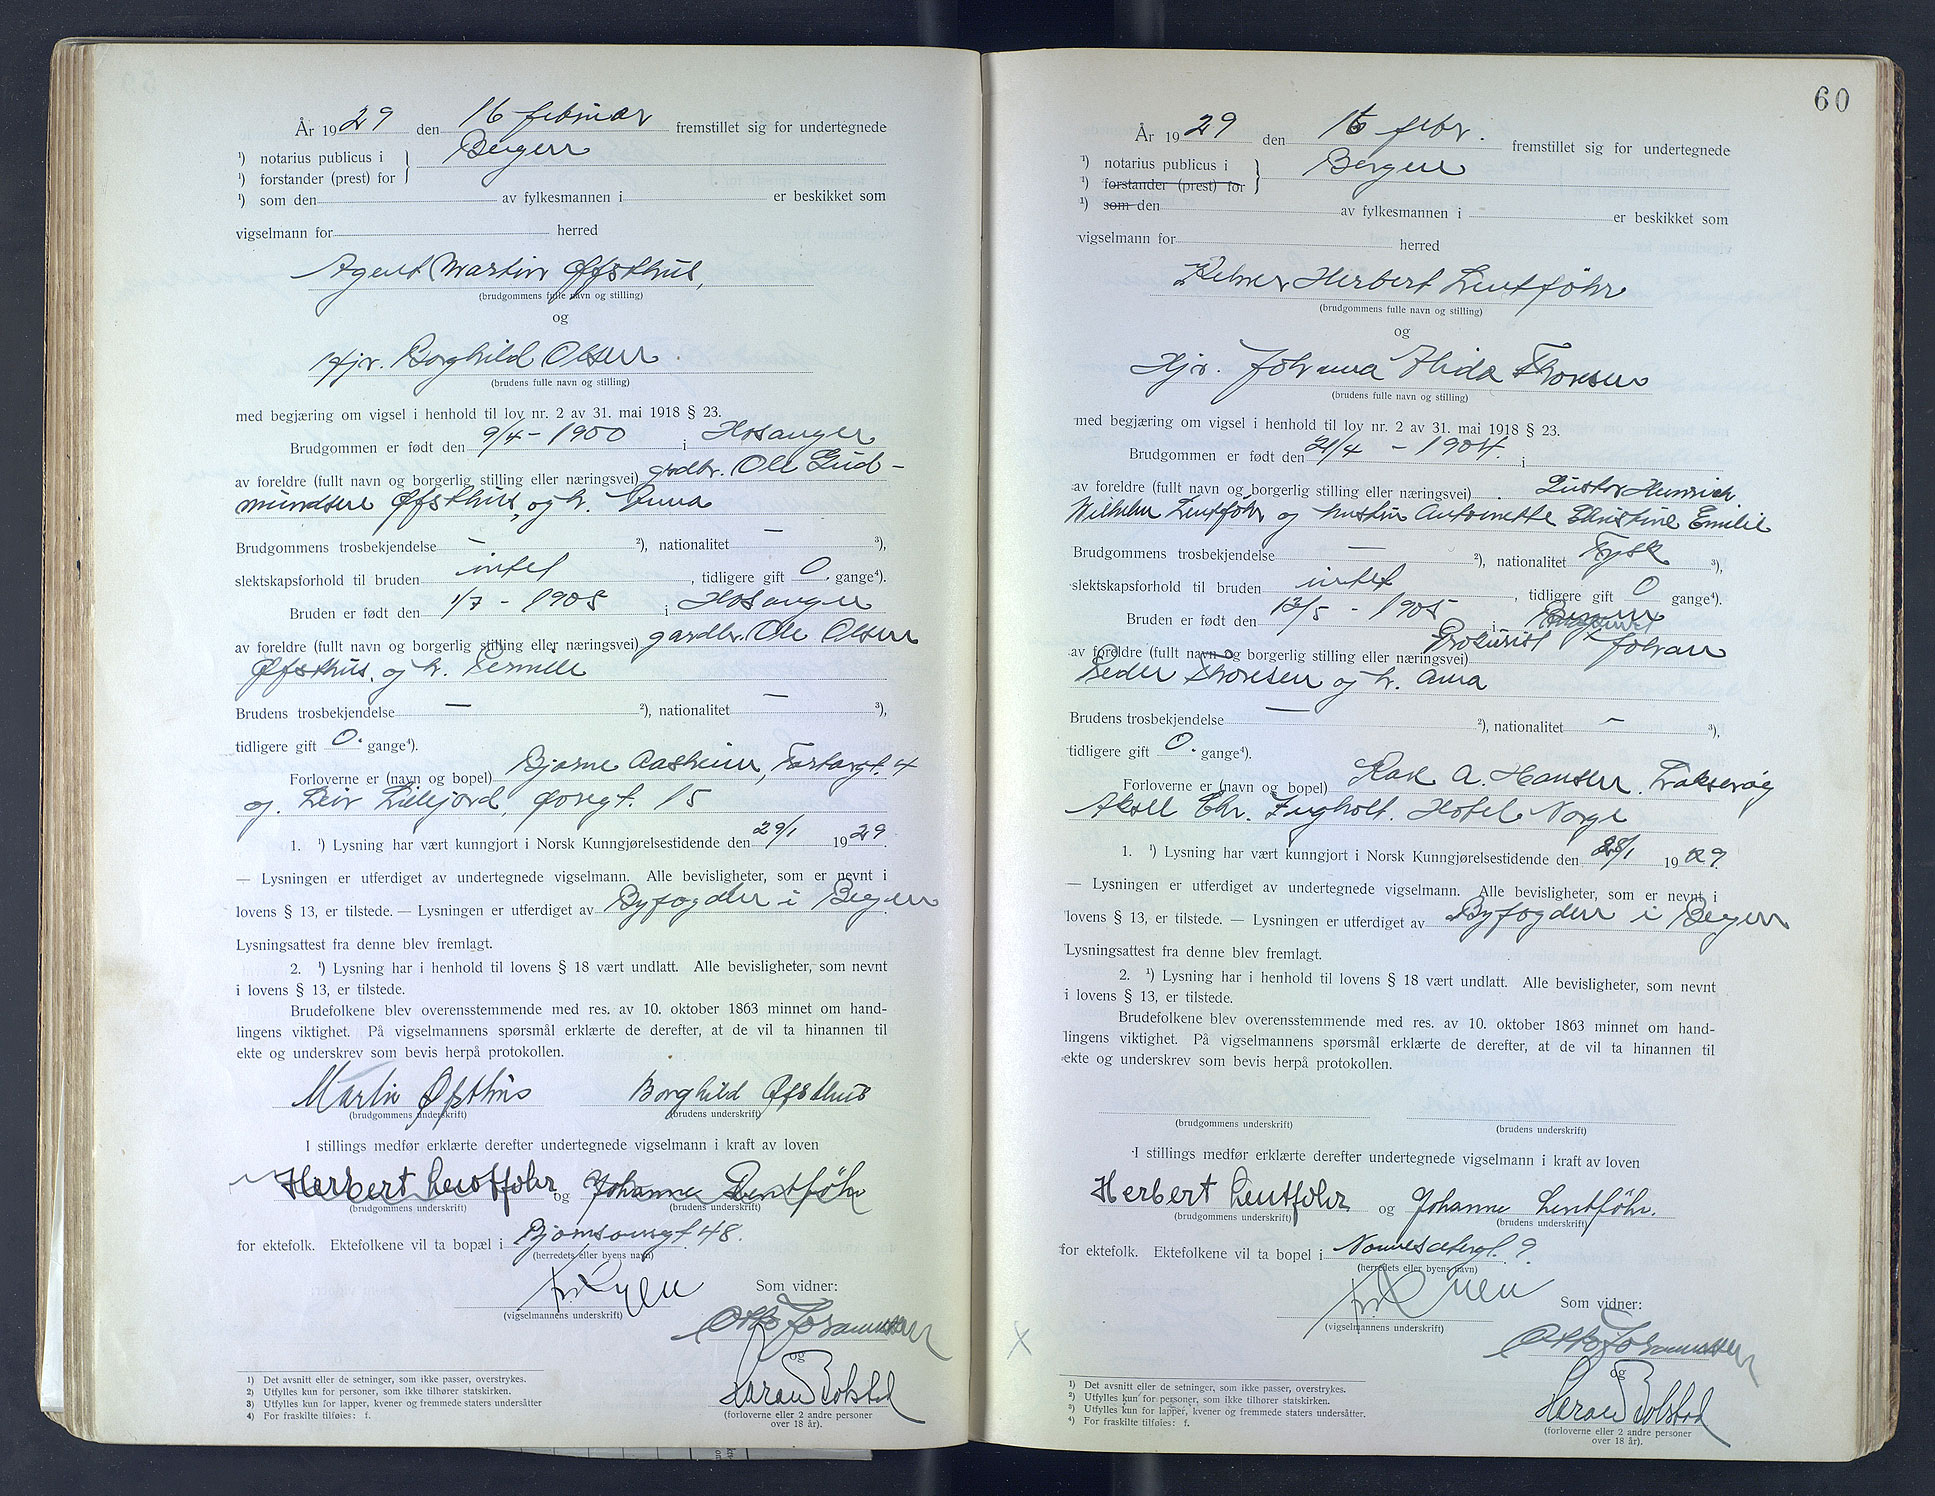 År 1929 den 16 februar fremstillet sig for undertegnede
¹) notarius publicus i } Bergen
¹) forstander (prest) for
¹) som den av fylkesmannen i er beskikket som
vigselmann for herred
Agent Martin Øfsthus,
(brudgommens fulle navn og stilling)
og
Hjv. Borghild Olsen.
(brudens fulle navn og stilling)
med begjæring om vigsel i henhold til lov nr. 2 av 31. mai 1918 § 23.
Brudgommen er født den 9/4 - 1900 i Hosanger
av foreldre (fullt navn og borgerlig stilling eller næringsvei) grdbr. Ole Gud-
mundsen Øfsthus, og h. Anna
Brudgommens trosbekjendelse — ²), nationalitet — ³),
slektskapsforhold til bruden intet, tidligere gift 0 gange⁴).
Bruden er født den 1/7 - 1905 i Hosanger
av foreldre (fullt navn og borgerlig stilling eller næringsvei) gardbr. Ole Olsen
Øfsthus, og h. Pernille
Brudens trosbekjendelse — ²), nationalitet — ³),
tidligere gift 0. gange⁴).
Forloverne er (navn og bopel) Bjarne Aasheim, 4
og. Leif Lillejord, Øvregt. 15
1. ¹) Lysning har vært kunngjort i Norsk Kunngjørelsestidende den 29/1 1929.
— Lysningen er utferdiget av undertegnede vigselmann. Alle bevisligheter, som er nevnt i
lovens § 13, er tilstede. — Lysningen er utferdiget av Byfogden i Bergen
Lysningsattest fra denne blev fremlagt.
2. ¹) Lysning har i henhold til lovens § 18 vært undlatt. Alle bevisligheter, som nevnt
i lovens § 13, er tilstede.
Brudefolkene blev overensstemmende med res. av 10. oktober 1863 minnet om hand-
lingens viktighet. På vigselmannens spørsmål erklærte de derefter, at de vil ta hinannen til
ekte og underskrev som bevis herpå protokollen.
Martin Øfsthus Borghild Øfsthus
(brudgommens underskrift) (brudens underskrift)
I stillings medfør erklærte derefter undertegnede vigselmann i kraft av loven
Herbert Lentföhr og Johanne Lentföhr
(brudgommens underskrift) (brudens underskrift)
for ektefolk. Ektefolkene vil ta bopæl i Bjørnsonsgt 48.
(herredets eller byens navn)
Som vidner:
(vigselmannens underskrift)
Otto Johannessen
og
Harald Bolstad
(forloverne eller 2 andre personer
over 18 år).
1) Det avsnitt eller de setninger, som ikke passer, overstrykes.
2) Utfylles kun for personer, som ikke tilhører statskirken.
3) Utfylles kun for lapper, kvener og fremmede staters undersåtter
4) For fraskilte tilføies: f.
60
År 1929 den 16 febr. fremstillet sig for undertegnede
¹) notarius publicus i } Bergen
¹) forstander (prest) for
¹) som den av fylkesmannen i er beskikket som
vigselmann for herred
Kelner Herbert Lentföhr
(brudgommens fulle navn og stilling)
og
Hjv. Johanna Alida Thoresen
(brudens fulle navn og stilling)
med begjæring om vigsel i henhold til lov nr. 2 av 31. mai 1918 § 23.
Brudgommen er født den 21/4 - 1904. i
av foreldre (fullt navn og borgerlig stilling eller næringsvei) Gustav Heinrich
Wilhelm Lentföhr og hustru Antoinette Christine Emilie
Brudgommens trosbekjendelse — ²), nationalitet Tysk ³),
slektskapsforhold til bruden intet, tidligere gift 0 gange⁴).
Bruden er født den 12/5 - 1905 i Bergen
av foreldre (fullt navn og borgerlig stilling eller næringsvei) Prokurist Johan
Peder Thoresen og h. Anna
Brudens trosbekjendelse — ²), nationalitet — ³),
tidligere gift 0. gange⁴).
Forloverne er (navn og bopel) Karl A. Hansen,
Aksel Chr. Hotel Norge
1. ¹) Lysning har vært kunngjort i Norsk Kunngjørelsestidende den 28/1 1929.
— Lysningen er utferdiget av undertegnede vigselmann. Alle bevisligheter, som er nevnt i
lovens § 13, er tilstede. — Lysningen er utferdiget av Byfogden i Bergen
Lysningsattest fra denne blev fremlagt.
2. ¹) Lysning har i henhold til lovens § 18 vært undlatt. Alle bevisligheter, som nevnt
i lovens § 13, er tilstede.
Brudefolkene blev overensstemmende med res. av 10. oktober 1863 minnet om hand-
lingens viktighet. På vigselmannens spørsmål erklærte de derefter, at de vil ta hinannen til
ekte og underskrev som bevis herpå protokollen.
(brudgommens underskrift) (brudens underskrift)
I stillings medfør erklærte derefter undertegnede vigselmann i kraft av loven
Herbert Lentföhr og Johanne Lentföhr.
(brudgommens underskrift) (brudens underskrift)
for ektefolk. Ektefolkene vil ta bopel i Nonnesætergt. 9
(herredets eller byens navn)
Som vidner:
(vigselmannens underskrift)
Otto Johannessen
og
Harald Bolstad
(forloverne eller 2 andre personer
over 18 år).
¹) Det avsnitt eller de setninger, som ikke passer, overstrykes.
²) Utfylles kun for personer, som ikke tilhører statskirken.
³) Utfylles kun for lapper, kvener og fremmede staters undersåtter.
⁴) For fraskilte tilføies: f.